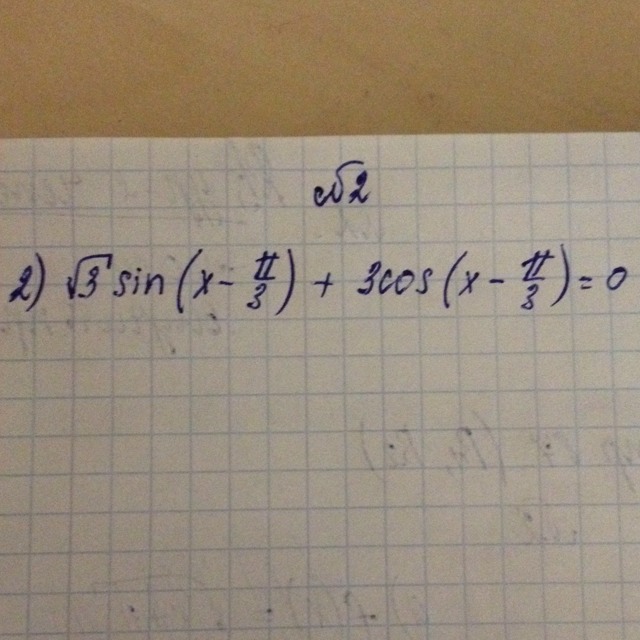 №2
2) √3 sin(x - π/3) + 3cos(x - π/3) = 0